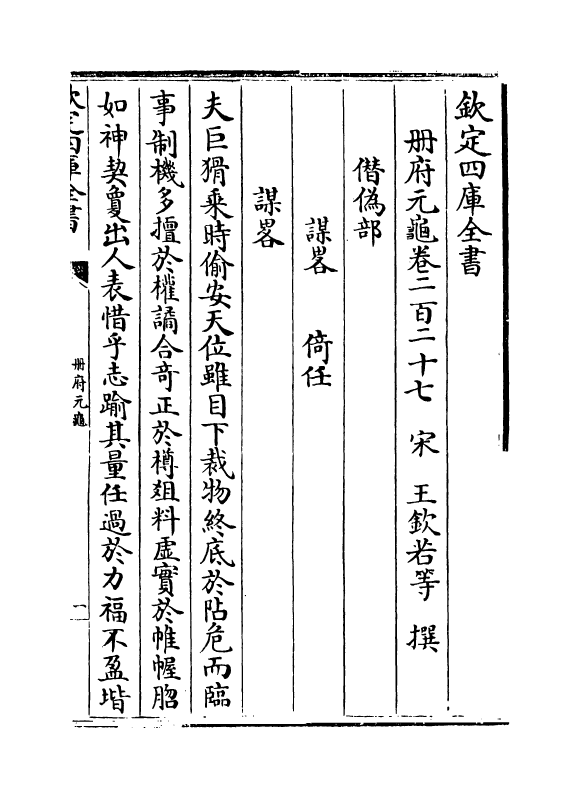 欽定四庫全書
册府元龜卷二百二十七　宋　王欽若等　撰
僭偽部
謀畧　倚任
謀畧
夫巨猾乘時偷安天位雖目下裁物終底於阽危而臨
事制機多擅於權譎合竒正於樽俎料虚實於帷幄胳
如神契敻出人表惜乎志踰其量任過於力福不盈眥
欽定四庫全書
册府元龜
一